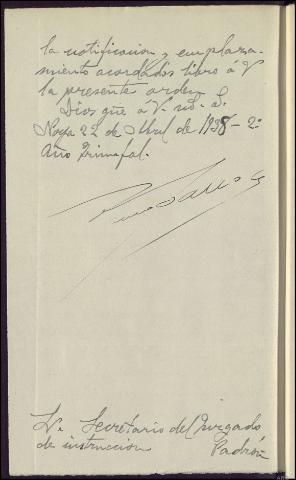 la notificacion y emplaza-
miento acordados libro á V
la presente orden
Dios gûe á V. m. S.
Noya 22 de Abril de 1938 - 2º
Año Triunfal.
Sr. Secretario del Juzgado
de instruccion Padrón